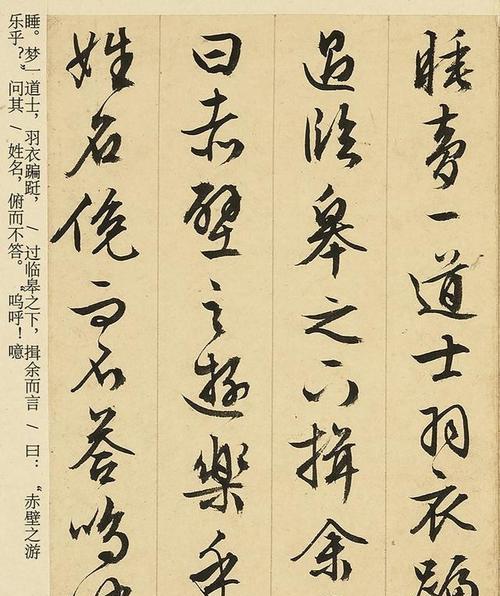 睡夢一道士羽衣蹁
過臨皋之下揖余
曰赤壁之遊樂乎
姓名俛而不答嗚
睡。梦一道士，羽衣蹁跹， \ 过临皋之下，揖余而言 \ 曰：“赤壁之游
乐乎？”问其 \ 姓名，俯而不答。“呜呼！噫